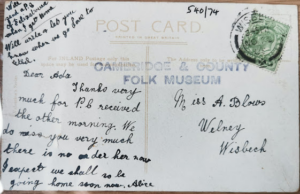 540/74
Will
your P.C.
when I get
Will write & let you
know when we go back to
POST CARD
CAMBRIDGE & COUNTY
FOLK MUSEUM
Dear Ada
Thanks very
much for P.C. received
the other morning. We
do miss you very much
there is no order her now
I expect we shall so be
going home soon now. Alice
Miss A. Blows
Welney
Wisbech